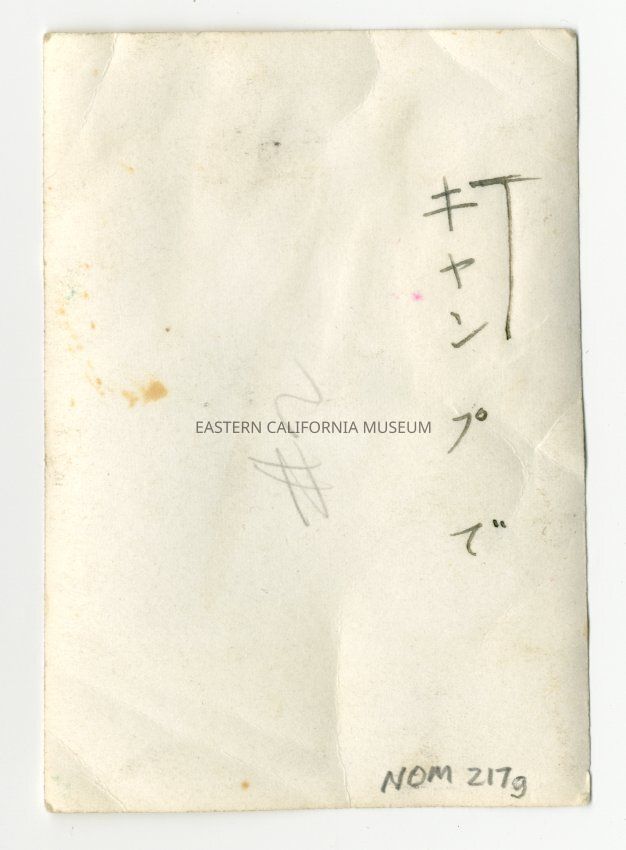 キャンプで
#2
EASTERN CALIFORNIA MUSEUM
NOM 217g